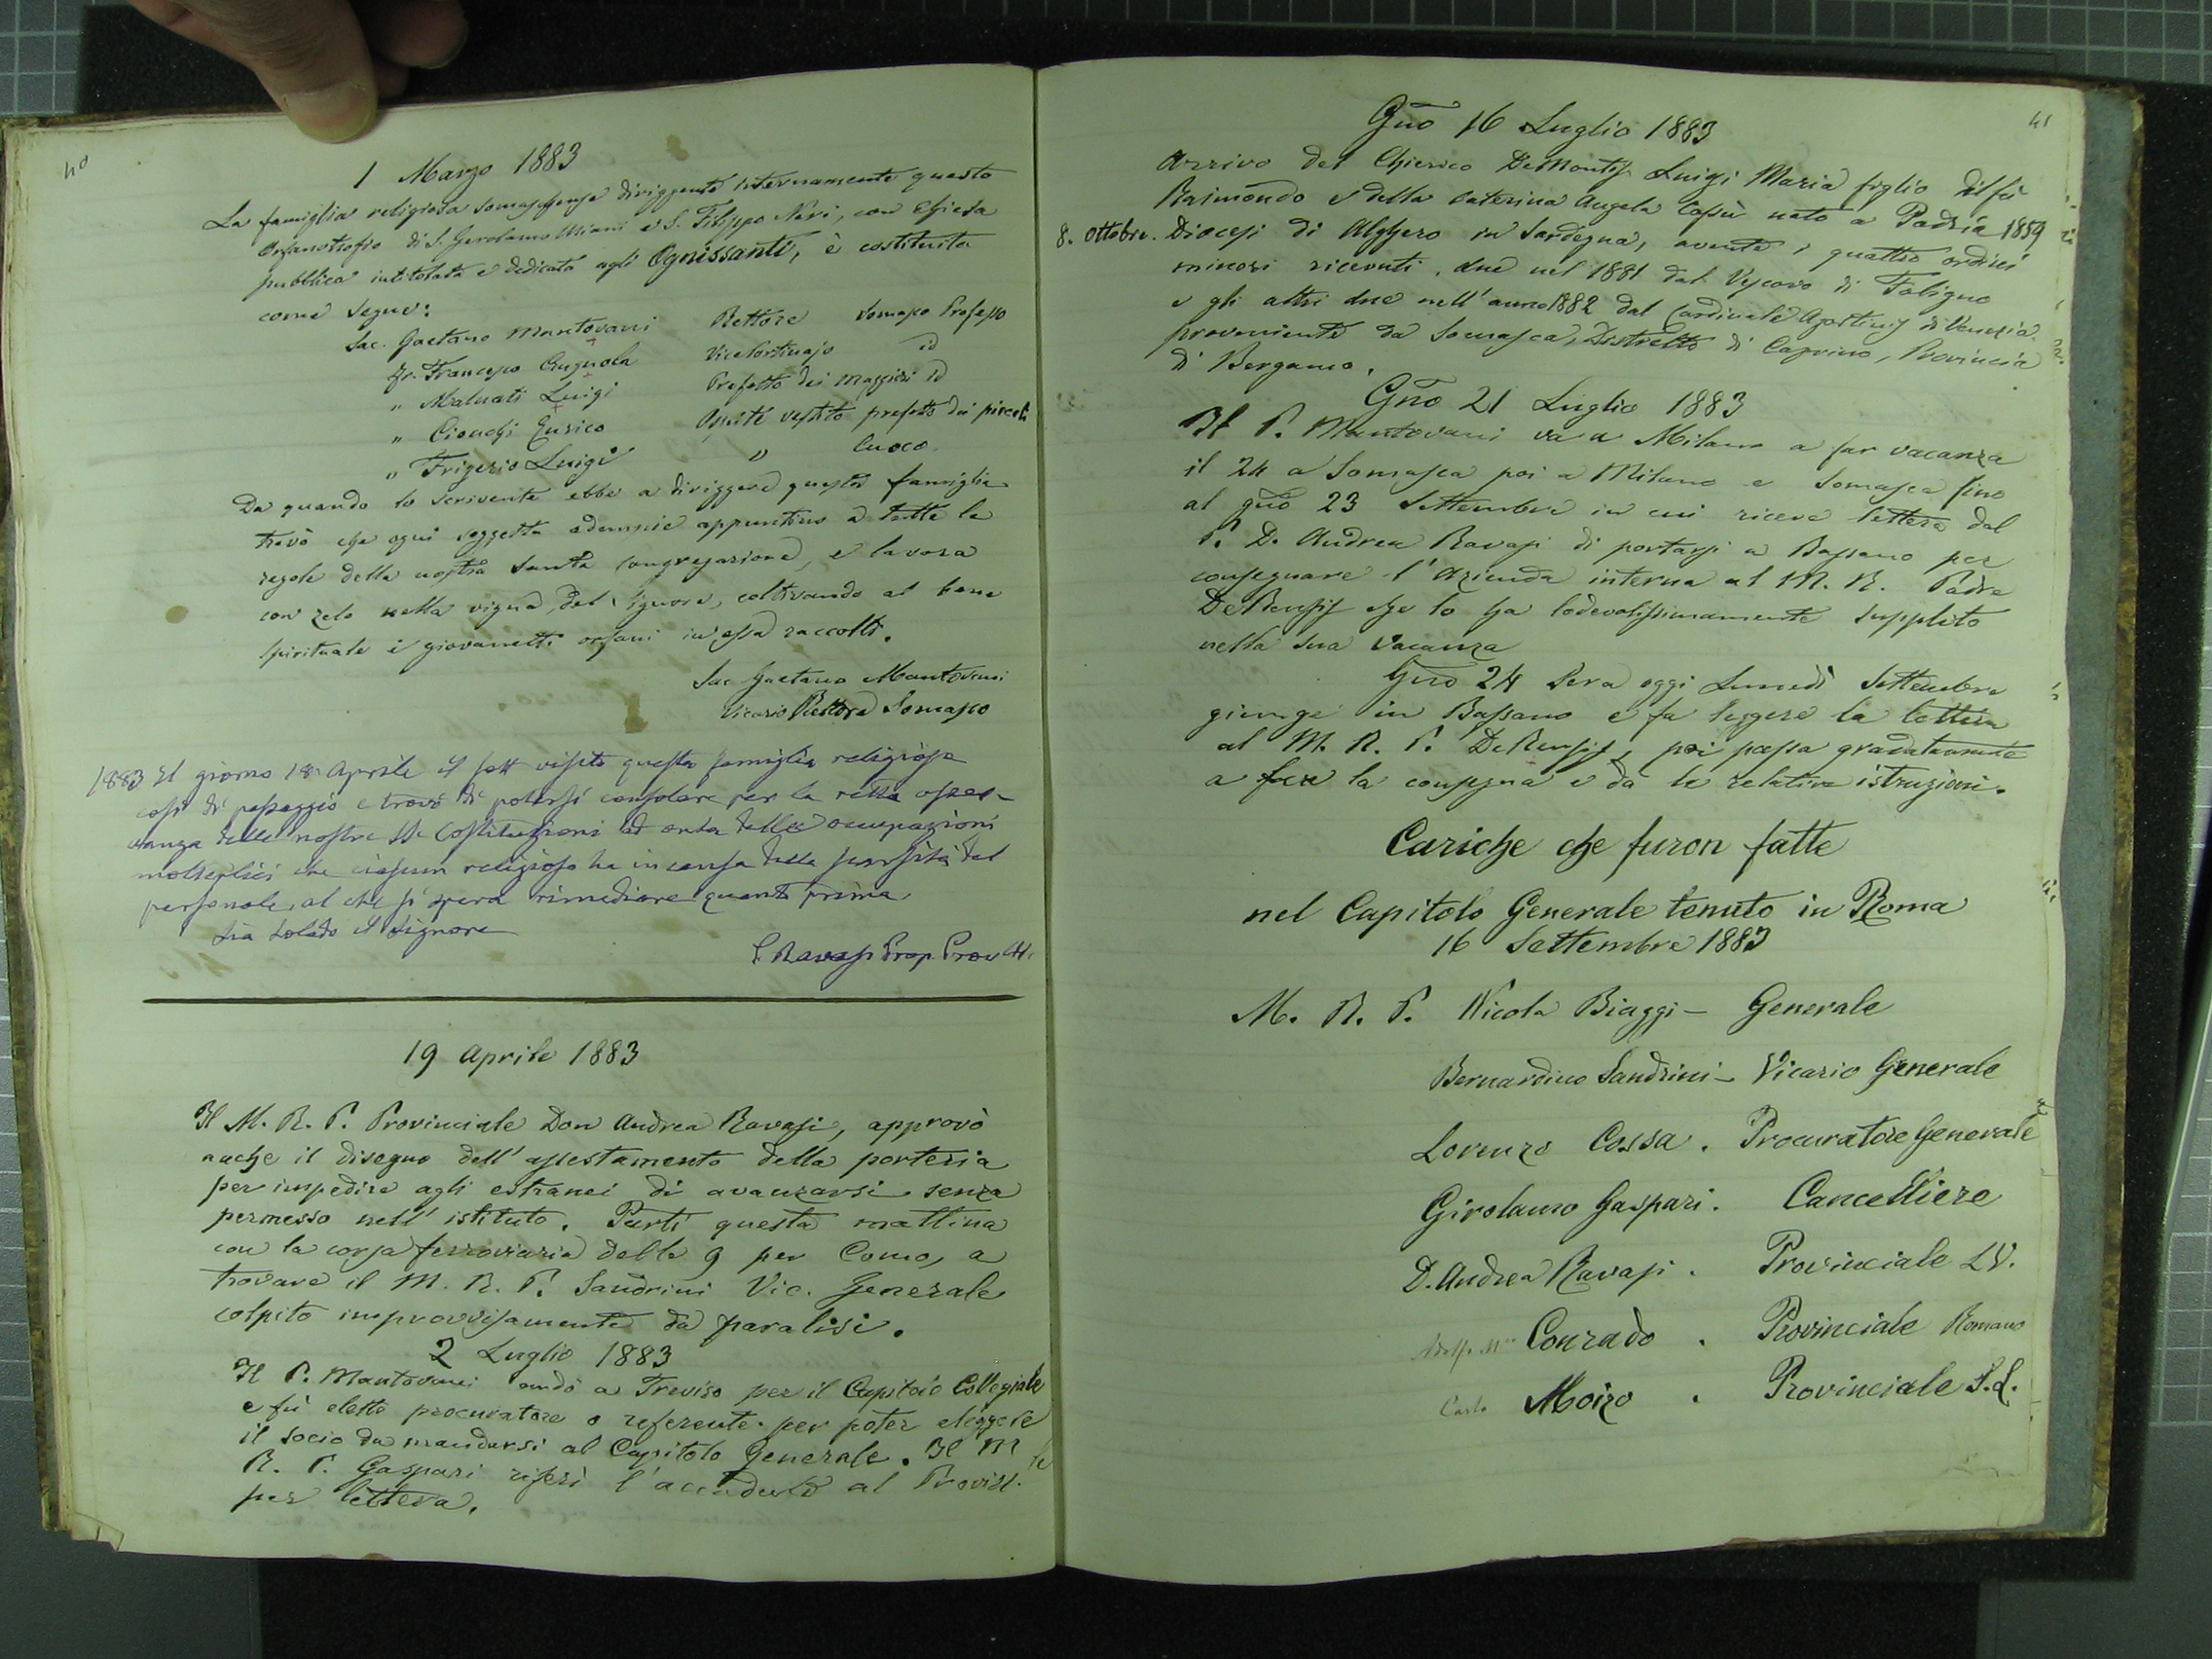 40
1 Marzo 1883
La famiglia religiosa somaschense diriggente internamente questo
Orfanotrofio di S. Gerolamo Miani e S. Filippo Neri, con Chiesa
pubblica intitolata e dedicata agli Ognissanti, è costituita
come segue:
Sac. Gaetano Mantovani Rettore Somasco Professo
Fr. Francesco Vice Portinajo id
" Malnati Luigi Prefetto dei Maggiori id
" Cionchi Enrico Ospite vestito prefetto dei piccoli
" Frigerio Luigi " Cuoco.
Da quando lo scrivente ebbe a diriggere questa famiglia
trovò che ogni soggetto adempie appuntino a tutte le
regole della nostra Santa Congregazione, e lavora
con zelo nella vigna del Signore, coltivando al bene
spirituale i giovanetti orfani in essa raccolti.
Sac. Gaetano Mantovani
Vicario Rettore Somasco
1883 Il giorno 18 Aprile il sott visitò questa famiglia religiosa
così di passaggio e trovò di potersi consolare per la retta osser-
vanza delle nostre SS. Costituzioni ad onta delle occupazioni
molteplici che ciascun religioso ha in causa della scarsità del
personale, al che si spera rimediare quanto prima.
Sia lodato il Signore
P. Ravasi Prep. Prov.
19 Aprile 1883
Il M. R. P. Provinciale Don Andrea Ravasi, approvò
anche il disegno dell'assestamento della porteria
per impedire agli estranei di avanzarsi senza
permesso nell'istituto. Partì questa mattina
con la corsa ferroviaria delle 9 per Como, a
trovare il M. R. P. Sandrini Vic. Generale
colpito improvvisamente da paralisi.
2 Luglio 1883
Il P. Mantovani andò a Treviso per il Capitolo Collegiale
e fù eletto procuratore o referente per poter eleggere
il socio da mandarsi al Capitolo Generale. Il M
R. P. Gaspari riferì l'accaduto al Provin.le
per lettera.
41
Gno 16 Luglio 1883
Arrivo del Chierico DeMontis Luigi Maria figlio del fù
Raimondo e della Caterina Angela Capù nato a Padria 1859
8. Ottobre. Diocesi di Alghero in Sardegna, avente i quattro ordini
minori ricevuti, due nel 1881 dal Vescovo di Foligno
e gli altri due nell'anno 1882 dal Cardinale Agostini di Venezia.
proveniente da Somasca, Distretto di Caprino, Provincia
di Bergamo.
Gno 21 Luglio 1883
Il P. Mantovani va a Milano a far vacanza
il 24 a Somasca poi a Milano e Somasca fino
al gno 23 Settembre in cui riceve lettera dal
P. D. Andrea Ravasi di portarsi a Bassano per
consegnare l'Azienda interna al M. R. Padre
DeRensis che lo ha lodevolissimamente supplito
nella sua vacanza
Gno 24 Sera oggi Lunedì Settembre
giunge in Bassano e fa leggere la lettera
al M. R. P. DeRensis, poi passa gradatamente
a fare la consegna e dà le relative istruzioni.
Cariche che furon fatte
nel Capitolo Generale tenuto in Roma
16 Settembre 1883
M. R. P. Nicola Biaggi - Generale
Bernardino Sandrini - Vicario Generale
Lorenzo Cossa . Procuratore Generale
Girolamo Gaspari . Cancelliere
D. Andrea Ravasi . Provinciale L.V.
Conrado . Provinciale Romano
Carlo Moizo . Provinciale S.L.